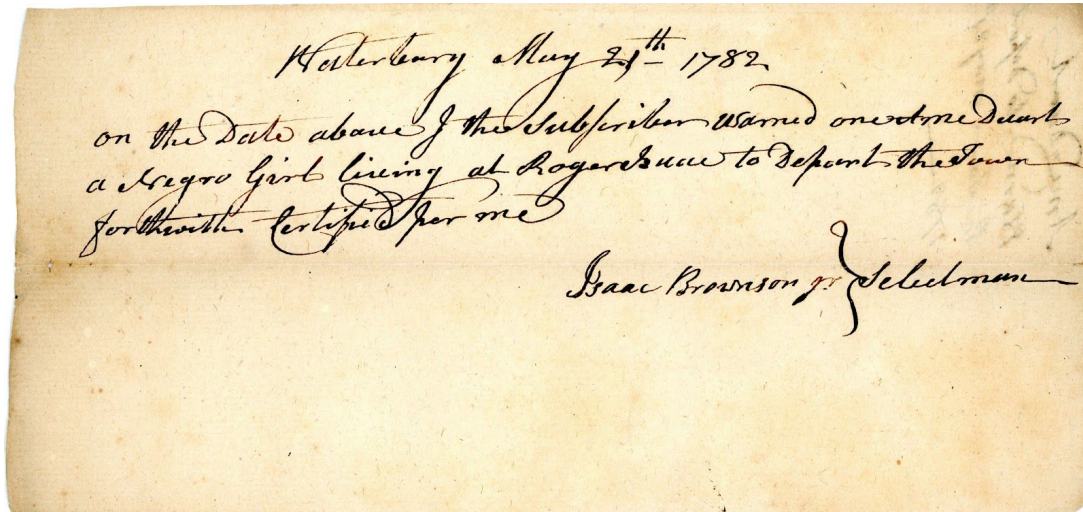 Waterbury May 21th 1782
on the Date above I the Subscriber warned one
a Negro Girl living at Roger Isaac to Depart the Town
forthwith Certified per me
Isaac Brownson jr } Selectman